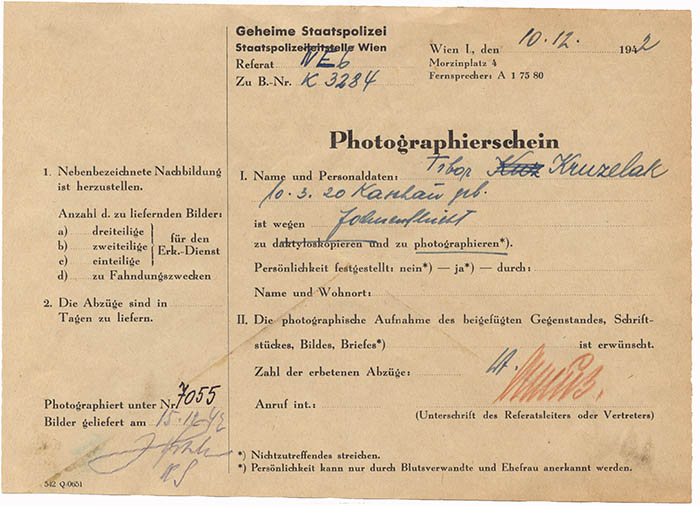 Geheime Staatspolizei
Staatspolizeileitstelle Wien
Referat IV E 6
Zu B.-Nr. K 3284
Wien I., den 10. 12. 1942
Morzinplatz 4
Fernsprecher: A 1 75 80
Photographierschein
1. Nebenbezeichnete Nachbildung
ist herzustellen.
Anzahl d. zu liefernden Bilder:
a) dreiteilige
b) zweiteilige
c) einteilige
für den
Erk.-Dienst
d) zu Fahndungszwecken
2. Die Abzüge sind in
Tagen zu liefern.
Photographiert unter Nr. 7055
Bilder geliefert am 15.12.42
I. Name und Personaldaten: Tibor Kruzelak
10. 3. 20 Kaschau geb.
ist wegen
zu daktyloskopieren und zu photographieren*).
Persönlichkeit festgestellt: nein*) — ja*) — durch:
Name und Wohnort:
II. Die photographische Aufnahme des beigefügten Gegenstandes, Schrift-
stückes, Bildes, Briefes*) ist erwünscht.
Zahl der erbetenen Abzüge:
Anruf int.:
(Unterschrift des Referatsleiters oder Vertreters)
*) Nichtzutreffendes streichen.
*) Persönlichkeit kann nur durch Blutsverwandte und Ehefrau anerkannt werden.
542 Q-0651